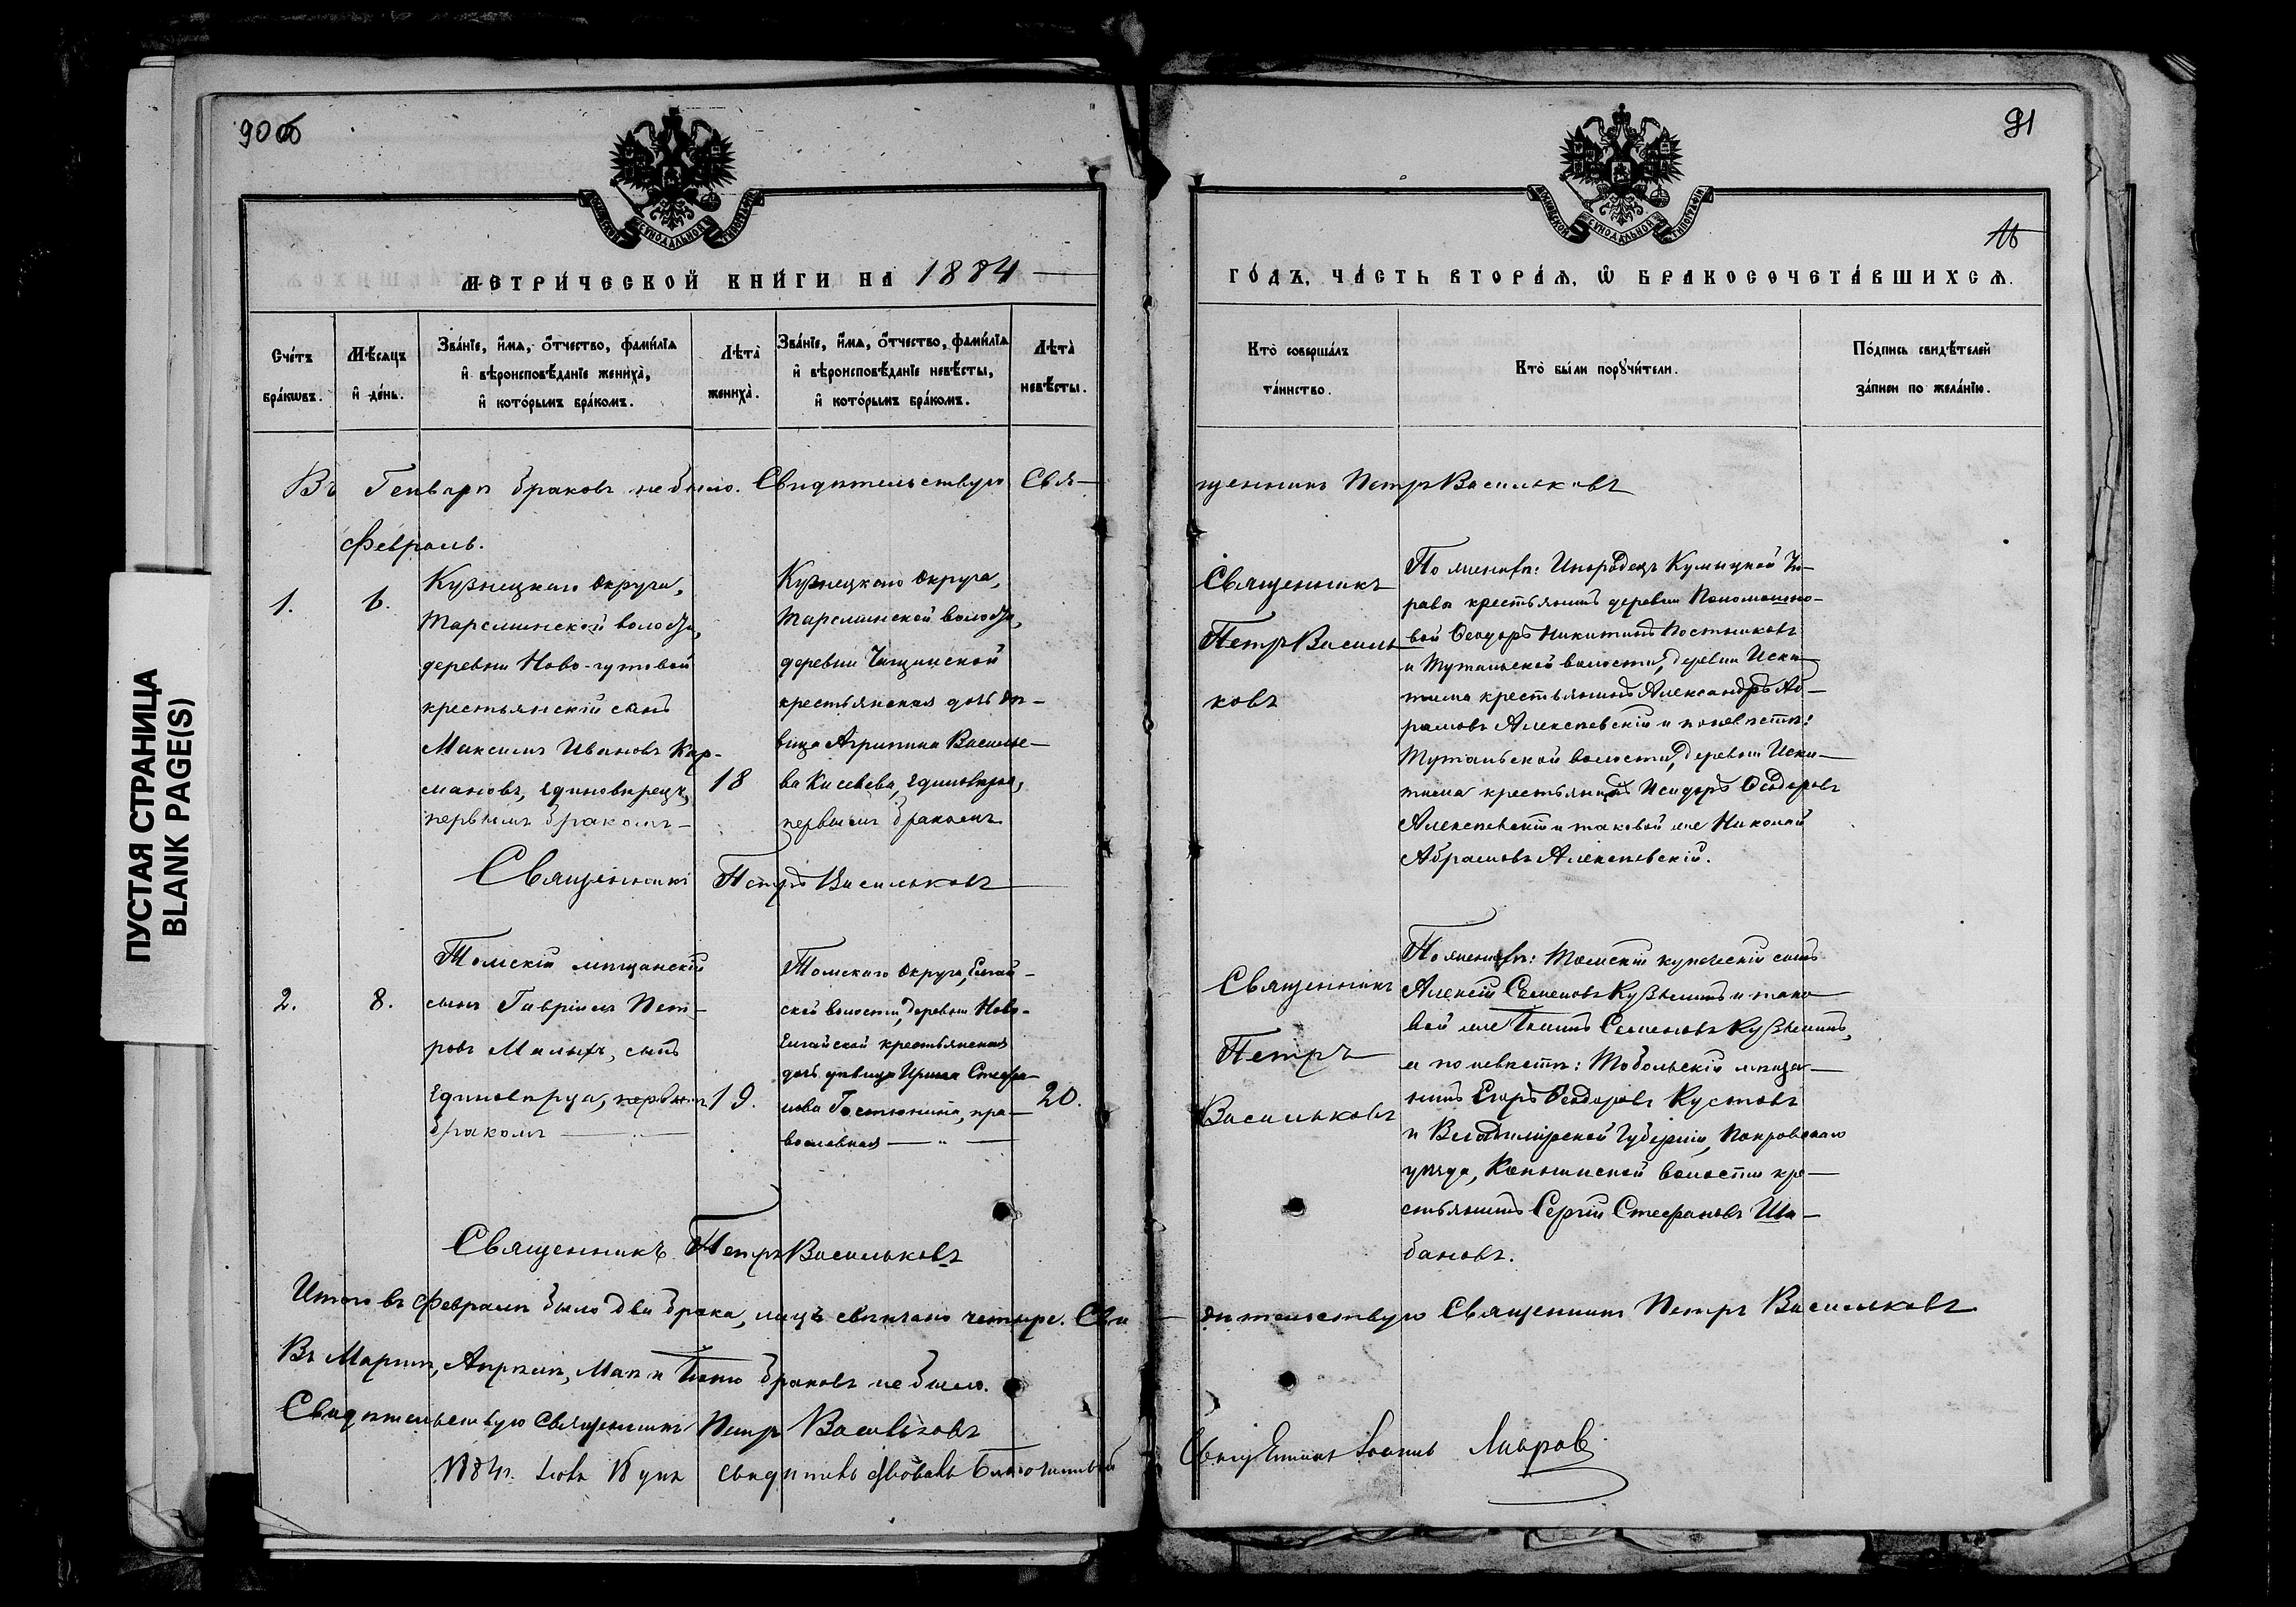 90 об
91
16
МОСКОВСКОЙ СУНОДАЛЬНОЙ ТИПОГРАФІИ
МОСКОВСКОЙ СУНОДАЛЬНОЙ ТИПОГРАФІИ
МЕТРИ́ЧЕСКОЙ КНИ́ГИ НА 1884
ГО́ДЪ, ЧА́СТЬ ВТОРА́Ѧ, Ѽ БРАКОСОЧЕТА́ВШИХСѦ.
Сче́тъ
бра́кѡвъ.
Мѣ́сѧцъ
и҆ де́нь.
Зва́нїе, и҆́мѧ, ѻ҆́тчество, фами́лїѧ
и҆ вѣроисповѣ́данїе жениха̀,
и҆ кото́рымъ бра́комъ.
Лѣ́та
жениха̀.
Зва́нїе, и҆́мѧ, ѻ҆́тчество, фами́лїѧ
и҆ вѣроисповѣ́данїе невѣ́сты,
и҆ кото́рымъ бра́комъ.
Лѣ́та
невѣ́сты.
Кто̀ соверша́лъ
та́инство.
Кто̀ бы́ли порꙋчи́тели.
По́дпись свидѣ́телей
за́писи по жела́нїю.
Въ Генварѣ браковъ не было. Свидѣтельствую Свя-
щенникъ Петръ Васильковъ
Февраль.
1.
6.
Кузнецкаго округа,
Тарсминской волости,
деревни Ново-гутовой
крестьянскій сынъ
Максимъ Ивановъ Кар-
мановъ, единовѣрецъ,
первымъ бракомъ
18
Кузнецкаго округа,
Тарсминской волости,
деревни
крестьянская дочь дѣ-
вица Агрипина Василье-
ва Киселева, единовѣрка,
первымъ бракомъ
Священникъ
Петръ Василь-
ковъ
По женихѣ: Инородецъ Кумыцкой Уп-
равы крестьянинъ деревни
вой Ѳеодоръ Никитинъ Постниковъ
и Тутальской волости, деревни Иски-
тима крестьянинъ Александръ Аб-
рамовъ Алексѣевскій и по невѣстѣ:
Тутальской волости, деревни Иски-
тима крестьянинъ Исидоръ Ѳеодоровъ
Алексѣевскій и таковой же Николай
Абрамовъ Алексѣевскій.
Священникъ Петръ Васильковъ
2.
8.
Томскій мѣщанскій
сынъ Гавріилъ Пет-
ровъ Малыхъ, сынъ
Единовѣрца, первымъ
бракомъ
19.
Томскаго округа, Елгай-
ской волости, деревни Ново-
Елгайской крестьянская
дочь дѣвица Ирина Стефа-
нова Гостюхина, пра-
вославная
20.
Священникъ
Петръ
Васильковъ
По женихѣ: Томскій купеческій сынъ
Алексій Семеновъ Кузьминъ и тако-
вой же Іоаннъ Семеновъ Кузьминъ,
и по невѣстѣ: Тобольскій мѣща-
нинъ Егоръ Ѳеодоровъ Кустовъ
и Владимірской Губерніи, Покровскаго
уѣзда, Копнинской волости кре-
стьянинъ Сергій Стефановъ Ша-
бановъ.
Священникъ Петръ Васильковъ
Итого въ Февралѣ было два брака, лицъ свѣнчано четыре. Сви-
дѣтельствую Священникъ Петръ Васильковъ
Въ Мартѣ, Апрѣлѣ, Маѣ и Іюнѣ браковъ не было.
Свидѣтельствую Священникъ Петръ Васильковъ
1884 г. Іюля дня свидѣтельствовалъ Благочинный
Священникъ Іоаннъ Лавровъ
ПУСТАЯ СТРАНИЦА
BLANK PAGE(S)